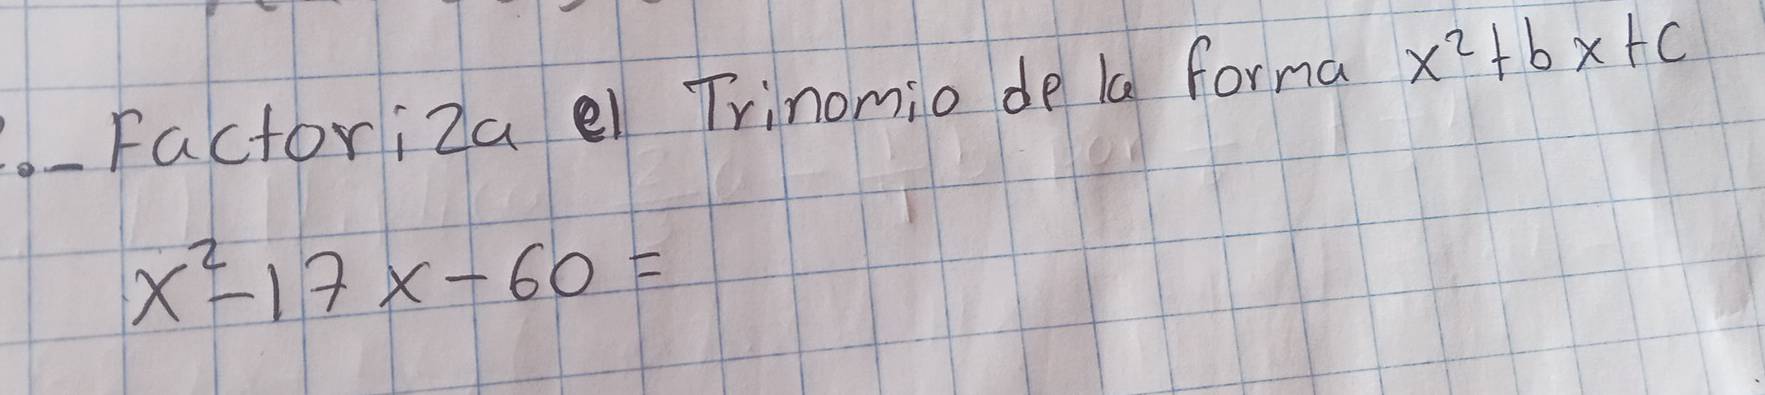 .- Factoriza el Trinomio de la forma x²+bx+c
x²-17x-60=